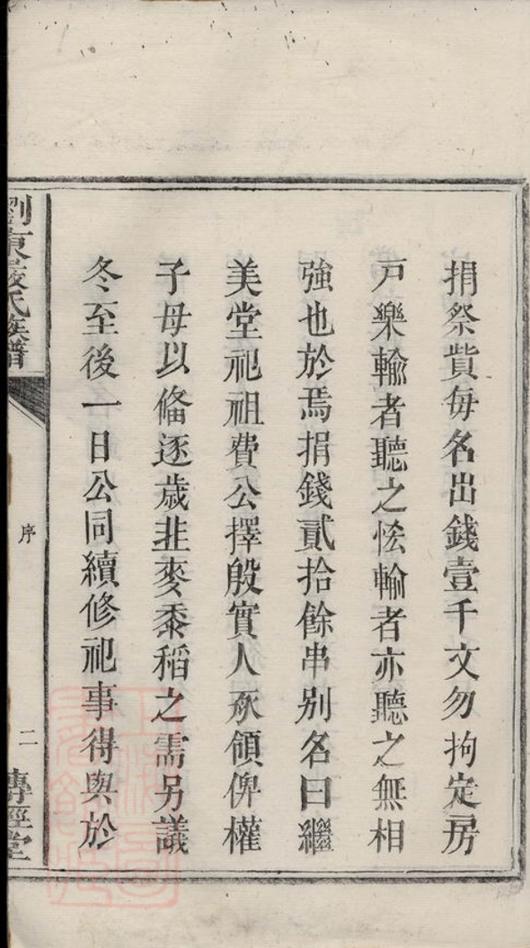 捐祭貲每名出錢壹千文勿拘定房
戸樂輸者聽之恡輸者亦聽之無相
強也於焉捐錢貳拾餘串别名曰繼
美堂祀祖費公擇殷實人承領俾權
子母以俻逐歳韭麥黍稻之需另議
冬至後一日公同續修祀事得與於
劉東
氏族譜
序
二
傳經堂